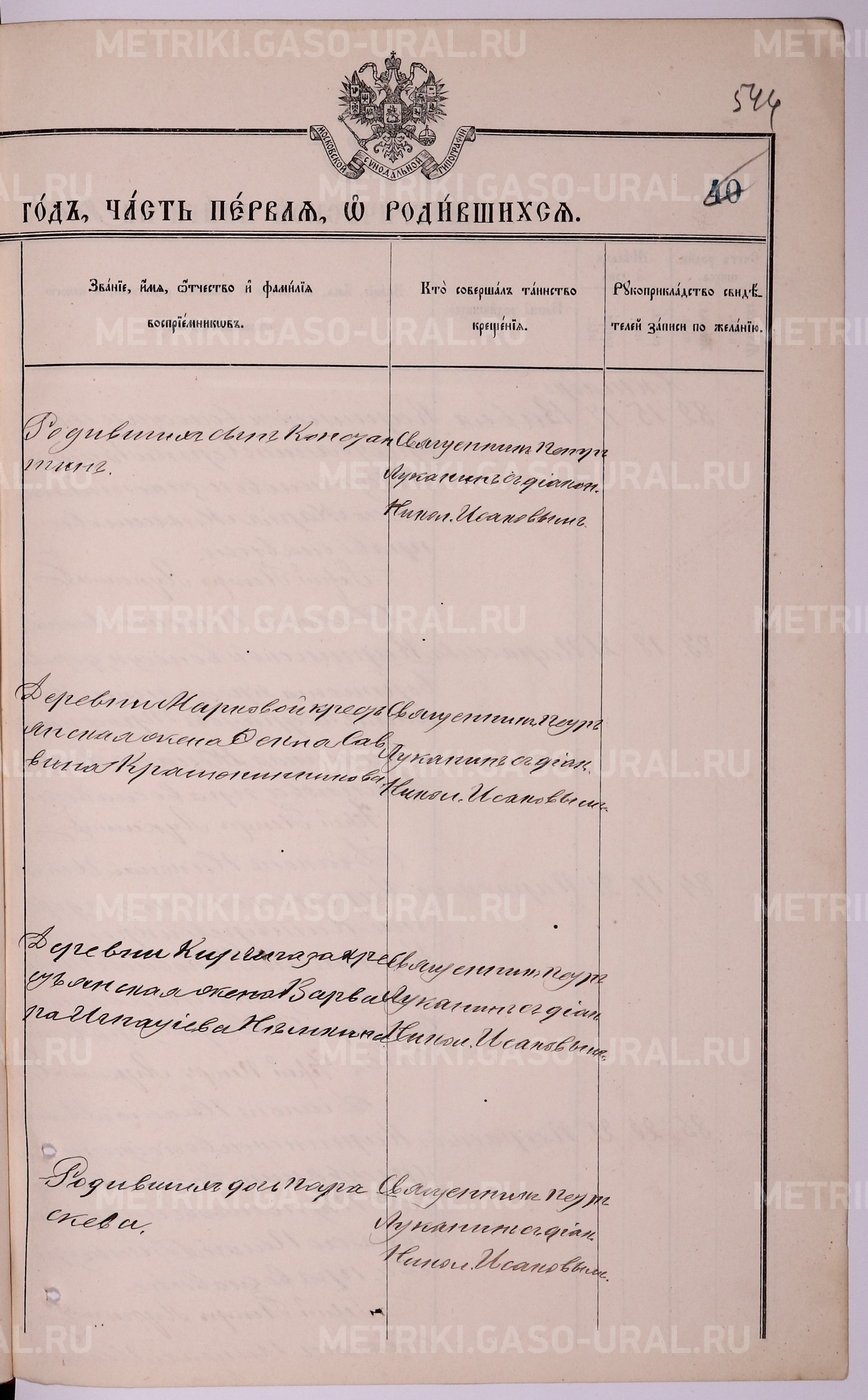 544
МОСКОВСКОЙ СѴНОДАЛЬНОЙ ТИПОГРАФІИ
40
го́дъ, ча́сть пе́рваѧ, ѡ҆ роди́вшихсѧ.
Зва́нїе, и҆́мѧ, ѻ҆́тчество и҆ фами́лїѧ
воспрїе́мникѡвъ.
Кто̀ соверша́лъ та́инство
креще́нїѧ.
Рꙋкоприкла́дство свидѣ́-
телей за́писи по жела́нїю.
Родившагося сынъ Констан
тинъ.
Священникъ Петръ
Луканинъ съ діакон.
Никол. Исаковымъ
Деревни Марковой кресть
янская жена Ѳекла Сав
вина Крашенинникова
Священникъ Петръ
Луканинъ съ діак.
Никол. Исаковым.
Деревни Киргишаза кре
стьянская жена Варва
ра Игнатіева Нѣмкина
Священникъ Петръ
Луканинъ съ діак
Никол. Исаковым.
Родившагося дочь Пара
скева.
Священникъ Петръ
Луканинъ съ діак.
Никол. Исаковым.
METRIKI.GASO-URAL.RU